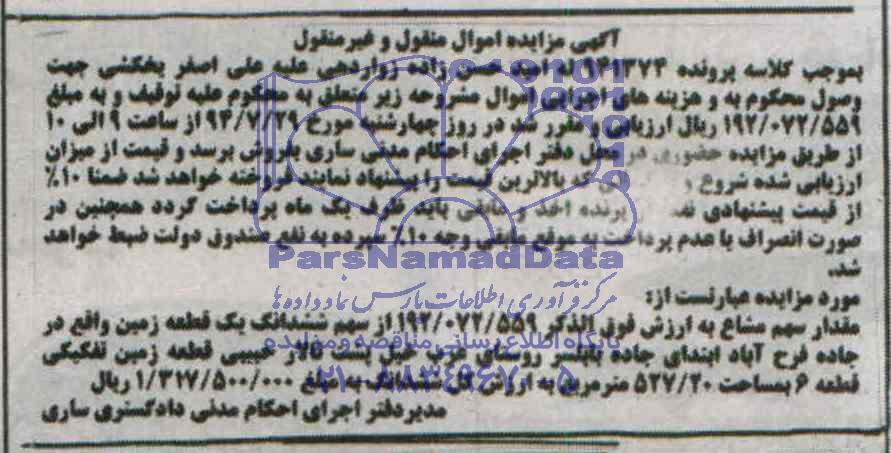 آگهی مزایده اموال منقول و غیرمنقول
بموجب کلاسه پرونده ۹۴۱۳۷۴ له امید حسن زاده زواردهی علیه علی اصغر یخکشی جهت
وصول محکوم به و هزینه های اجرایی اموال مشروحه زیر متعلق به محکوم علیه توقیف و به مبلغ
۱۹۲/۰۷۲/۵۵۹ ریال ارزیابی و مقرر شد در روز چهارشنبه مورخ ۹۴/۷/۲۹ از ساعت ۹ الی ۱۰
از طریق مزایده حضوری در محل دفتر اجرای احکام مدنی ساری بفروش برسد و قیمت از میزان
ارزیابی شده شروع و که بالاترین قیمت را پیشنهاد نمایند فروخته خواهد شد ضمنا ۱۰٪
از قیمت پیشنهادی از برنده اخذ و مابقی باید ظرف یک ماه پرداخت گردد همچنین در
صورت انصراف یا عدم پرداخت به موقع مابقی وجه ۱۰٪ سپرده به نفع صندوق دولت ضبط خواهد
شد.
مورد مزایده عبارتست از:
مقدار سهم مشاع به ارزش فوق الذکر ۱۹۲/۰۷۲/۵۵۹ از سهم ششدانگ یک قطعه زمین واقع در
جاده فرح آباد ابتدای جاده بابلسر روستای قرب خیل پشت تالار حبیبی قطعه زمین تفکیکی
قطعه ۶ بمساحت ۵۲۷/۲۰ مترمربع به ارزش کل ششدانگ به مبلغ ۱/۳۱۷/۵۰۰/۰۰۰ ریال
مدیر دفتر اجرای احکام مدنی دادگستری ساری
ParsNamadData
مرکز فرآوری اطلاعات پارس نماد داده ها
پایگاه اطلاع رسانی مناقصه و مزایده
۰۲۱-۸۸۳۴۹۶۷۰-۵